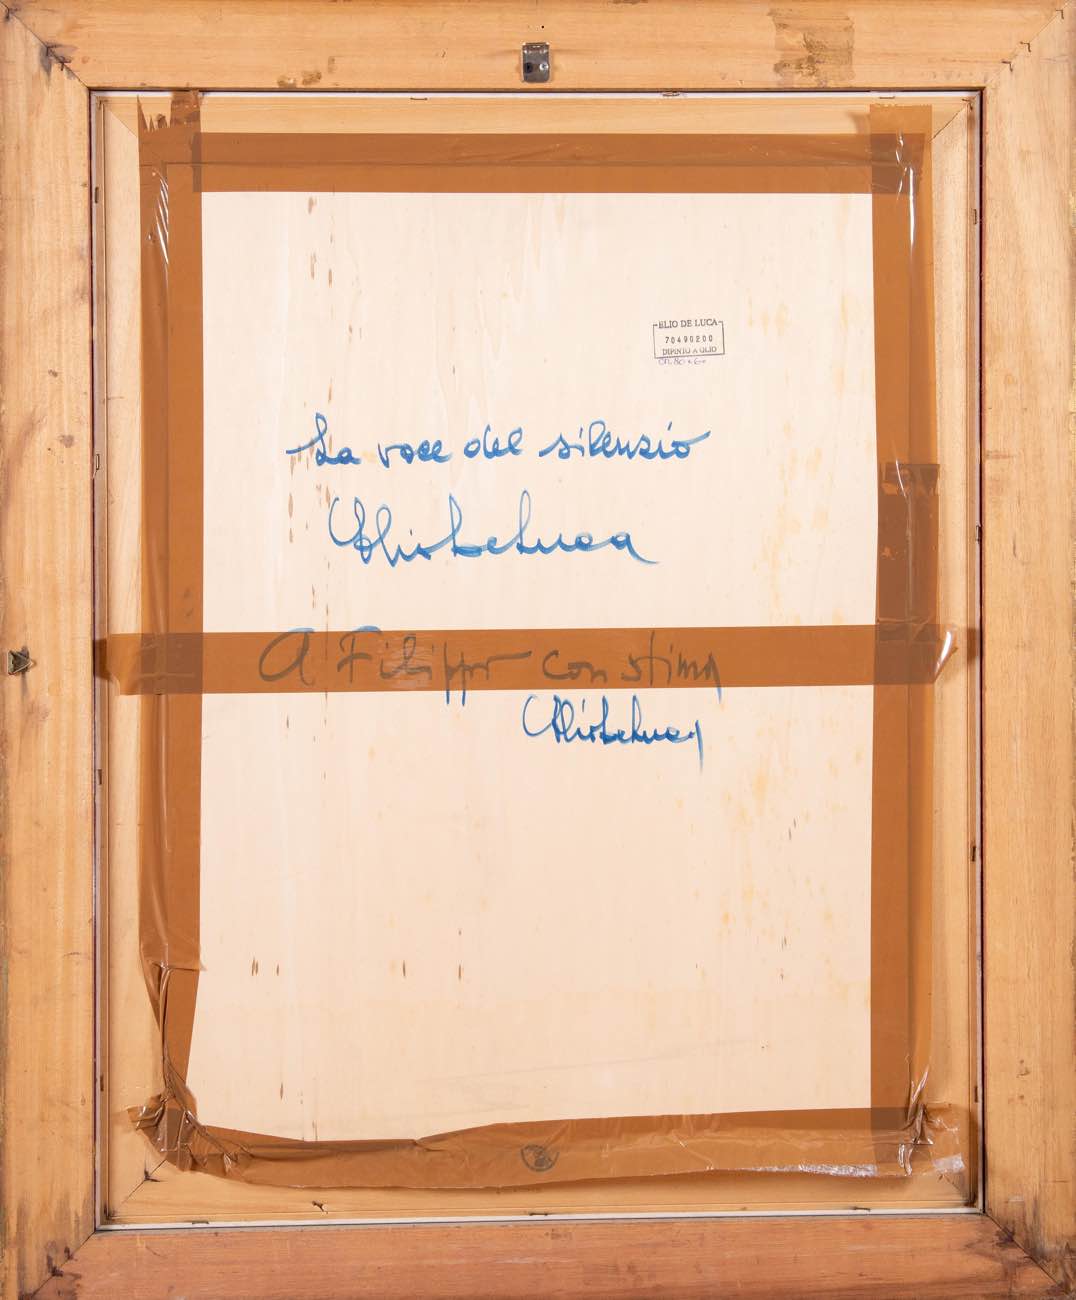 ELIO DE LUCA
70490200
DIPINTO A OLIO
cm. 80 x 60
La voce del silenzio
Elio De Luca
A Filippo con stima
Elio De Luca